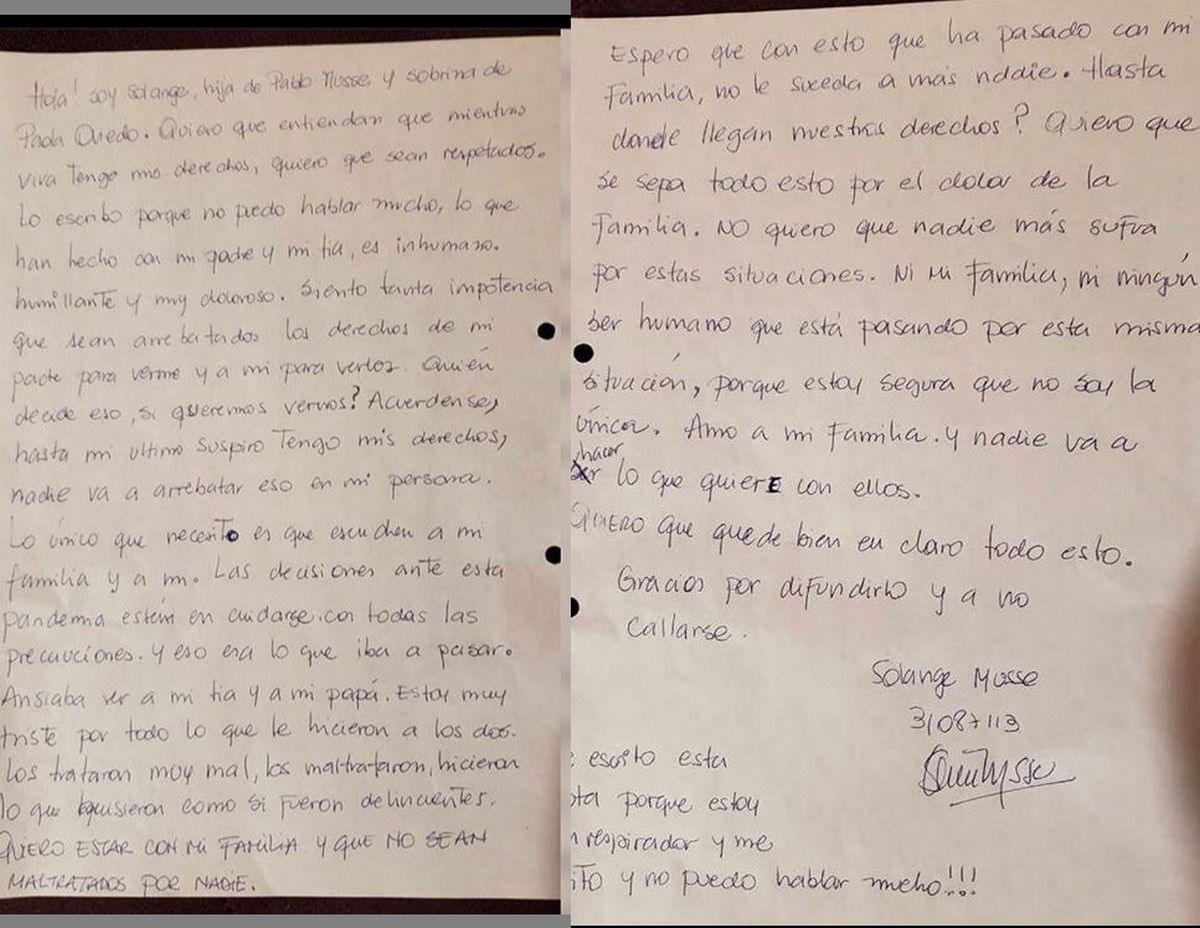 Hola! Soy Solange, hija de Pablo Musse y sobrina de
Paola Oviedo. Quiero que entiendan que mientras
viva Tengo mis derechos, quiero que sean respetados.
Lo escribo porque no puedo hablar mucho, lo que
han hecho con mi padre y mi tia, es inhumano.
humillante y muy doloroso. Siento tanta impotencia
que sean arrebatados los derechos de mi
padre para verme y a mi para verlos. Quién
decide eso, si queremos vernos? Acuerdense,
hasta mi ultimo suspiro Tengo mis derechos,
nadie va a arrebatar eso en mi persona.
Lo único que necesito es que escuchen a mi
familia y a mi. Las decisiones ante esta
pandemia están en cuidarse con todas las
precauciones. y eso era lo que iba a pasar.
Ansiaba ver a mi tia y a mi papá. Estoy muy
triste por todo lo que le hicieron a los dos.
Los trataron muy mal, los maltrataron, hicieron
lo que quisieron como si fueron delincuentes.
QUIERO ESTAR CON MI FAMILIA Y QUE NO SEAN
MALTRATADOS POR NADIE.
Espero que con esto que ha pasado con mi
Familia, no le suceda a más nadie. Hasta
donde llegan nuestros derechos? Quiero que
se sepa todo esto por el dolor de la
familia. NO quiero que nadie más sufra
por estas situaciones. Ni mi Familia, ni ningún
ser humano que está pasando por esta misma
situación, porque estoy segura que no soy la
única. Amo a mi Familia. y nadie va a
hacer lo que quiere con ellos.
QUIERO que quede bien en claro todo esto.
Gracias por difundirlo y a no
callarse.
Solange Musse
31087113
e escrito esta
ota porque estoy
n respirador y me
ito y no puedo hablar mucho!!!